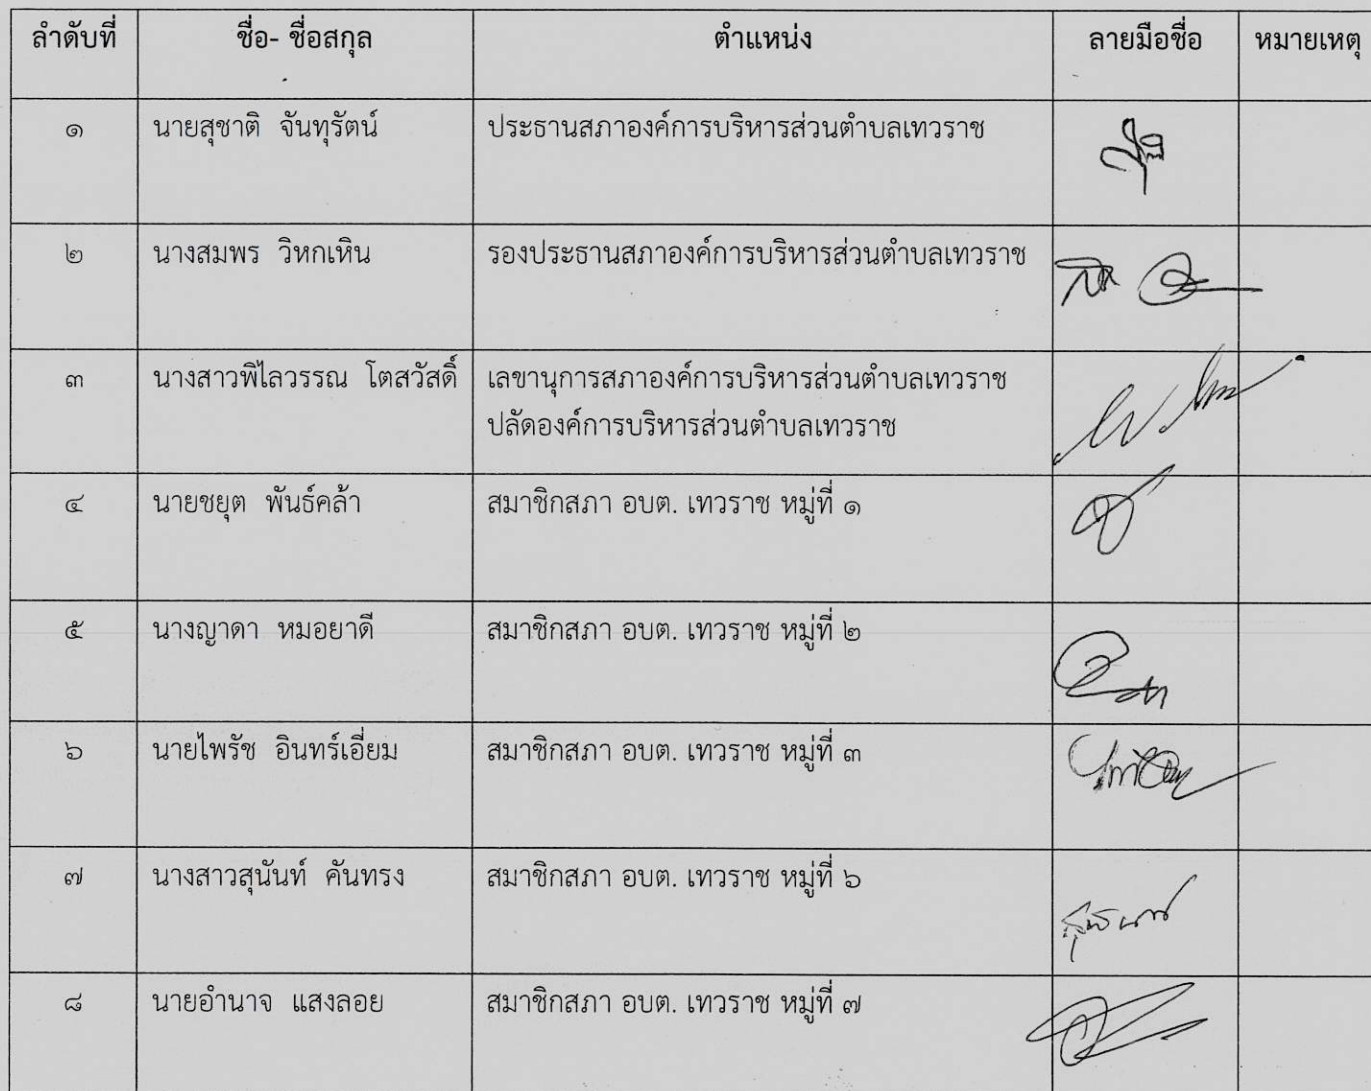 ลำดับที่ ชื่อ- ชื่อสกุล ตำแหน่ง ลายมือชื่อ หมายเหตุ
๑ นายสุชาติ จันทุรัตน์ ประธานสภาองค์การบริหารส่วนตำบลเทวราช
๒ นางสมพร วิหกเหิน รองประธานสภาองค์การบริหารส่วนตำบลเทวราช
๓ นางสาวพิไลวรรณ โตสวัสดิ์ เลขานุการสภาองค์การบริหารส่วนตำบลเทวราช
ปลัดองค์การบริหารส่วนตำบลเทวราช
๔ นายชยุต พันธ์คล้า สมาชิกสภา อบต. เทวราช หมู่ที่ ๑
๕ นางญาดา หมอยาดี สมาชิกสภา อบต. เทวราช หมู่ที่ ๒
๖ นายไพรัช อินทร์เอี่ยม สมาชิกสภา อบต. เทวราช หมู่ที่ ๓
๗ นางสาวสุนันท์ คันทรง สมาชิกสภา อบต. เทวราช หมู่ที่ ๖
๘ นายอำนาจ แสงลอย สมาชิกสภา อบต. เทวราช หมู่ที่ ๗